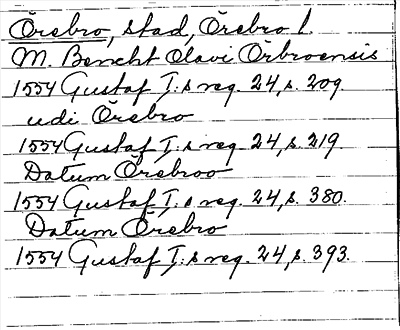 Örebro, stad, Örebro l.
M. Bencht Olavi Örbroensis
1554 Gustaf I:s reg. 24, s. 209.
udi Örebro
1554 Gustaf I:s reg. 24, s. 219.
Datum Örebroo
1554 Gustaf I:s reg. 24, s. 380.
Datum Örebro
1554 Gustaf I:s reg. 24, s. 393.